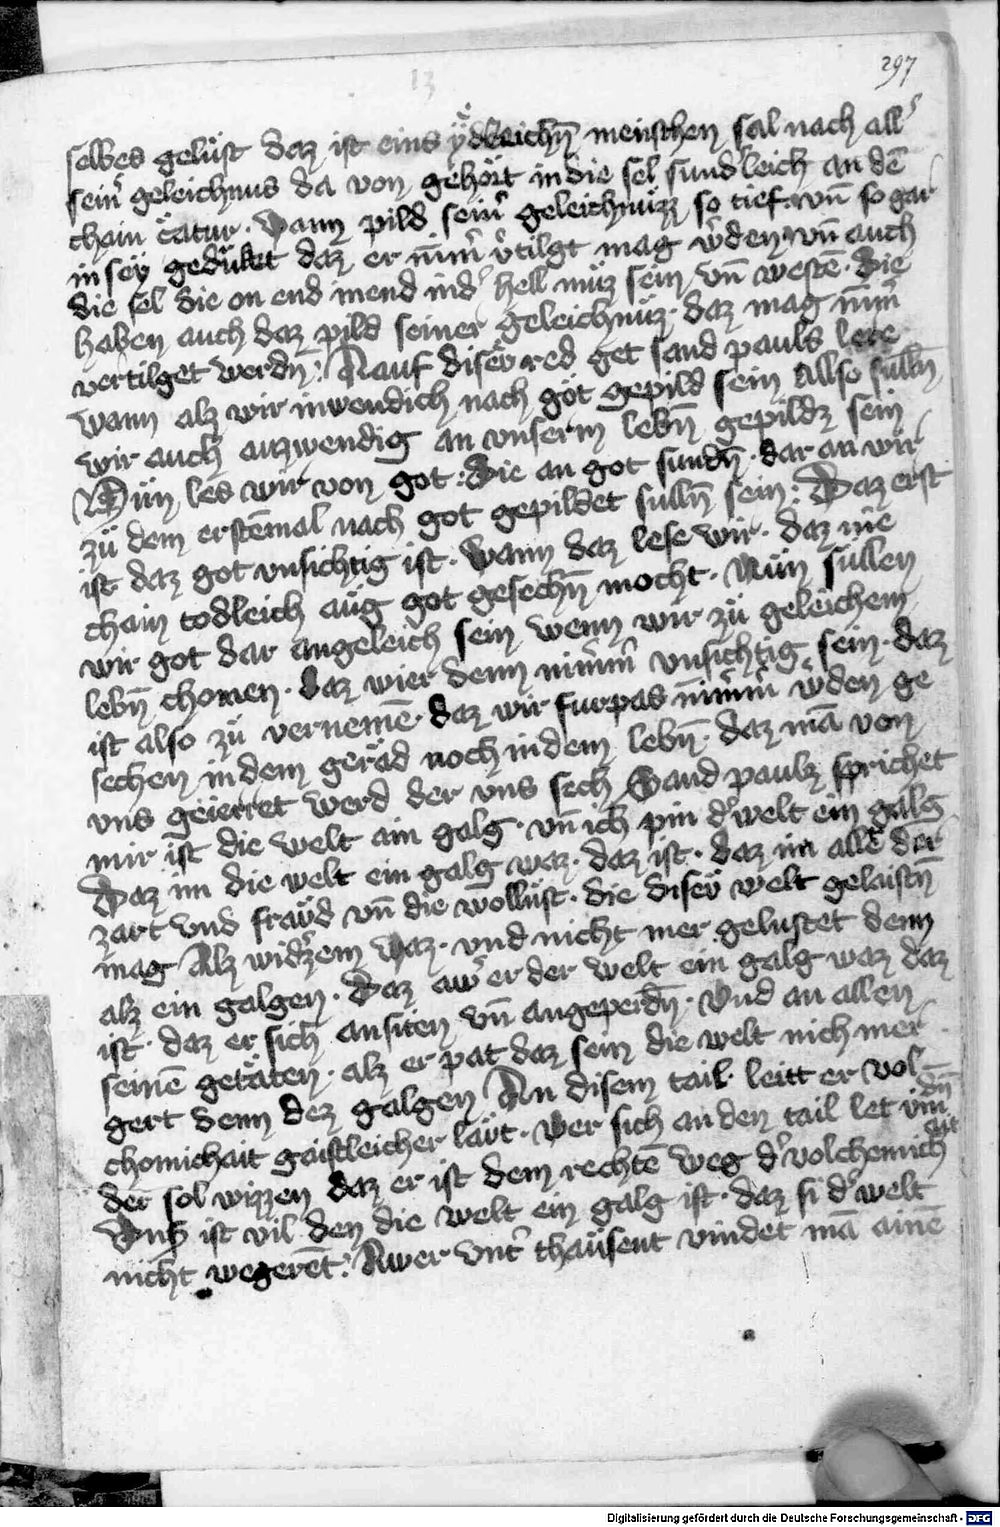 297
13
selbes gelüst daz ist eins ydleichn̄ menschen sal nach all
sein͛ geleichnus da von gehört in die sel sund͛leich an dē
chain c͛atur · Wann pild sein͛ geleichnüzz so tief vn̄ so gar
in sey gedükt daz er nim̄͛ v͛tilgt mag w͛den vn̄ auch
die sel die on end inend ind͛ hell müz sein vn̄ weste · die
haben auch daz pild seiner geleichnüz · daz mag nim̄͛
vertilget werdn̄ : Aauf diser red get sand pauls lere
wann alz wir inwendich nach got gepild sein Allso sulln̄
wir auch auzwendig an vnserm lebn̄ gepildz sein
Nün les wir von got : die an got sundn̄ · dar an wir
zü dem erstēmal nach got gepildet sulln̄ sein : Daz erst
ist daz got vnsichtig ist · Wann daz lese wir · daz nie
chain todleich aüg got gesechn̄ mocht · Nün süllen
wir got dar angeleich sein wenn wir zü geleichem
lebn̄ chomen · daz wier denn nim̄͛m͛ vnsichtig sein · daz
ist also zü vernemē · daz wir furpas nim̄͛m͛ w͛den ge
sechen in dem geräd noch in dem lebn̄ · daz mā von
vns geierret werd der vns sech Sand paulz sprichet
mir ist die welt ain galg · vn̄ ich pin d͛ welt ein galg
Daz im die welt ein galg waz · daz ist · daz im alle der
zart vnd fraüd vn̄ die wollüst · die diser welt gelaistn̄
mag Alz wid͛zem waz · vnd nicht mer gelustet denn
alz ein galgen · Daz aw͛ er der welt ein galg waz daz
ist · daz er sich ansiten vn̄ angeperdn̄ · Vnd an allen
seinē getäten · alz er pat daz sein die welt nich mer
gert denn dez galgen An disem tail · leitt er vol
chomichait gaistleicher läut · wer sich an den tail let vin
dn̄
der sol wizzen daz er ist dem rechtē weg d͛ volchemich
ait
Vns ist vil den die welt ein galg ist · daz si d͛ welt
nicht wegerēt : Awer vnt͛ thausent vindet mā ainē
Digitalisierung gefördert durch die Deutsche Forschungsgemeinschaft · DFG